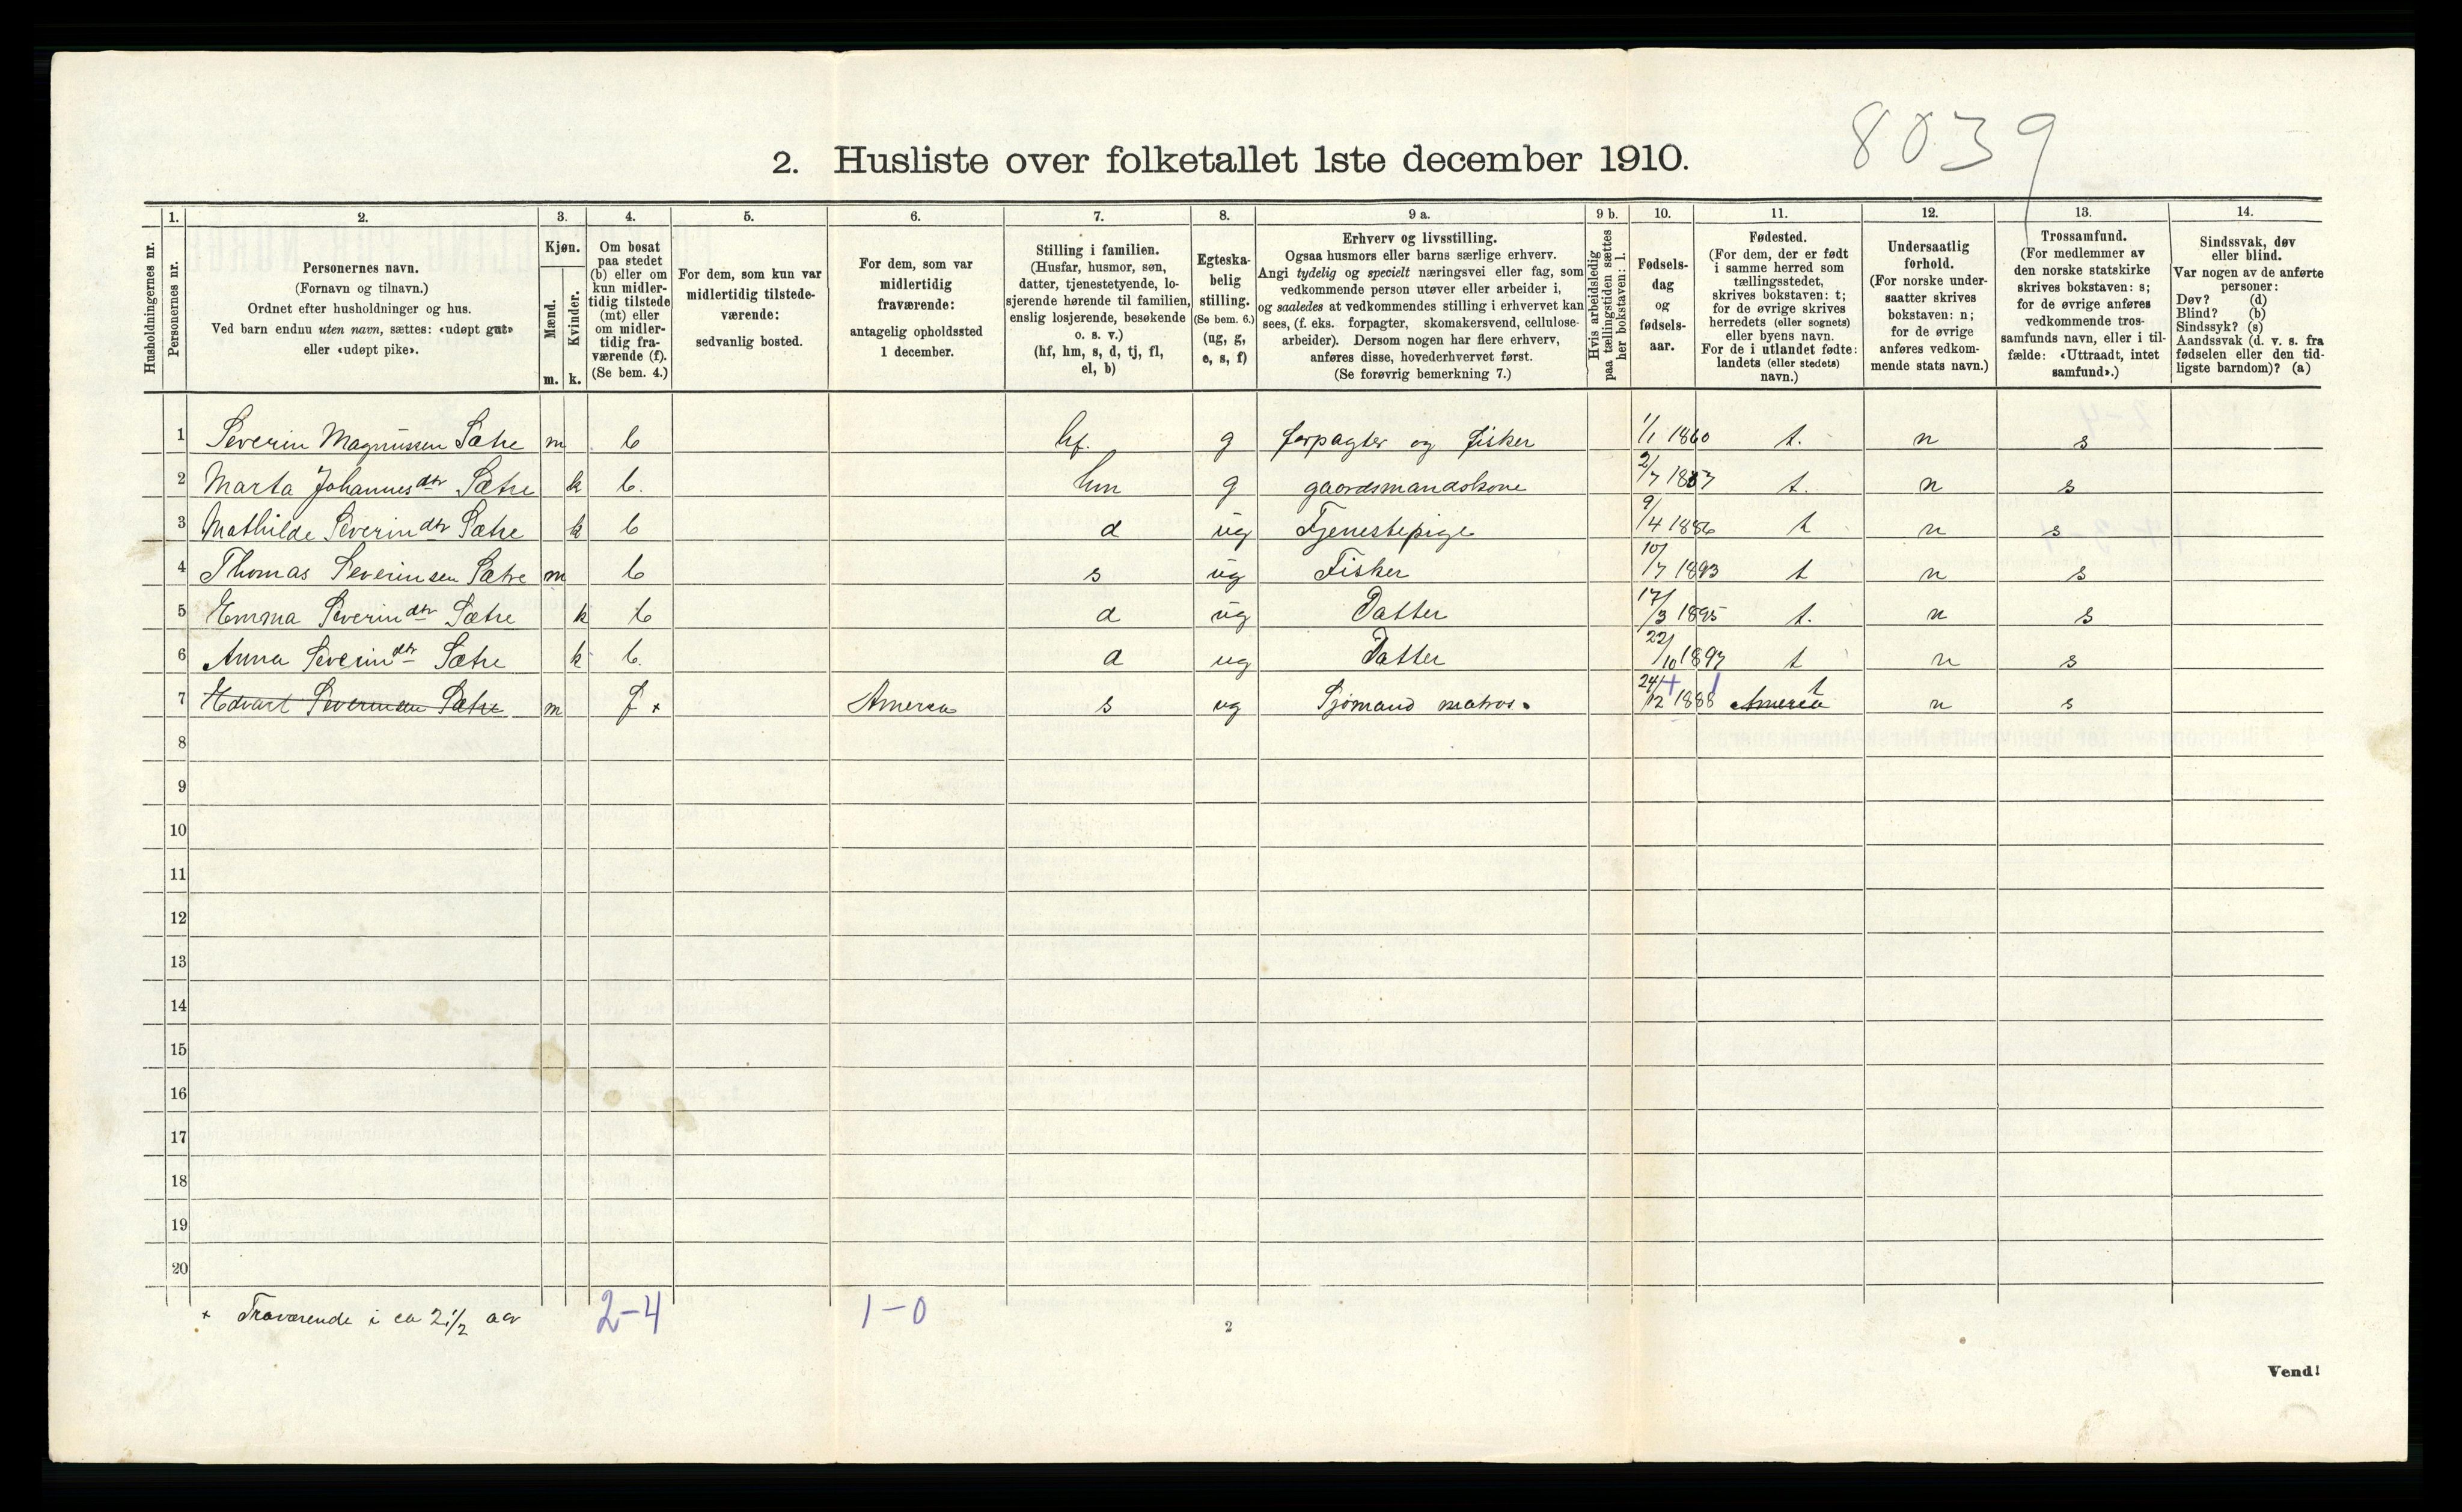 8039
2. Husliste over folketallet 1ste december 1910.
Husholdningernes nr.
1.
Personernes nr.
2.
Personernes navn.
(Fornavn og tilnavn.)
Ordnet efter husholdninger og hus.
Ved barn endnu uten navn, sættes: «udøpt gut»
eller «udøpt pike».
3.
Kjøn.
Mænd.
Kvinder.
m. k.
4.
Om bosat
paa stedet
(b) eller om
kun midler-
tidig tilstede
(mt) eller
om midler-
tidig fra-
værende (f).
(Se bem. 4.)
5.
For dem, som kun var
midlertidig tilstede-
værende:
sedvanlig bosted.
6.
For dem, som var
midlertidig
fraværende:
antagelig opholdssted
1 december.
7.
Stilling i familien.
(Husfar, husmor, søn,
datter, tjenestetyende, lo-
sjerende hørende til familien,
enslig losjerende, besøkende
o. s. v.)
(hf, hm, s, d, tj, fl,
el, b)
8.
Egteska-
belig
stilling.
(Se bem. 6.)
(ug, g,
e, s, f)
9 a.
Erhverv og livsstilling.
Ogsaa husmors eller barns særlige erhverv.
Angi tydelig og specielt næringsvei eller fag, som
vedkommende person utøver eller arbeider i,
og saaledes at vedkommendes stilling i erhvervet kan
sees, (f. eks. forpagter, skomakersvend, cellulose-
arbeider). Dersom nogen har flere erhverv,
anføres disse, hovederhvervet først.
(Se forøvrig bemerkning 7.)
9 b.
Hvis arbeidsledig
paa tællingstiden sættes
her bokstaven: l.
10.
Fødsels-
dag
og
fødsels-
aar.
11.
Fødested.
(For dem, der er født
i samme herred som
tællingsstedet,
skrives bokstaven: t;
for de øvrige skrives
herredets (eller sognets)
eller byens navn.
For de i utlandet fødte:
landets (eller stedets)
navn.)
12.
Undersaatlig
forhold.
(For norske under-
saatter skrives
bokstaven: n;
for de øvrige
anføres vedkom-
mende stats navn.)
13.
Trossamfund.
(For medlemmer av
den norske statskirke
skrives bokstaven: s;
for de øvrige anføres
vedkommende tros-
samfunds navn, eller i til-
fælde: «Uttraadt, intet
samfund».)
14.
Sindssvak, døv
eller blind.
Var nogen av de anførte
personer:
Døv? (d)
Blind? (b)
Sindssyk? (s)
Aandssvak (d. v. s. fra
fødselen eller den tid-
ligste barndom)? (a)
1 Severin Magnussen Sætre m b hf. g forpagter og fisker 1/1 1860 t. n s
2 Marta Johannesdtr Sætre k b. hm g gaardsmandskone 2/7 t. n s
3 Mathilde Severindtr Sætre k b d ug Tjenestepige 9/4 1886 t n s
4 Thomas Severinsen Sætre m b s ug Fisker 10/7 1893 t n s
5 Emma Severindtr Sætre k b d ug Datter 17/3 1895 t. n s
6 Anna Severindtr Sætre k b. d ug Datter 22/10 1897 t n s
7 Edvart Severinsen Sætre m f × Amerca s ug Sjømand matros. 24/12 1888 Amerca t n s
8
9
10
11
12
13
14
15
16
17
18
19
20
× Fraværende i ca 2 1/2 aar
2-4 1-0
2
Vend!